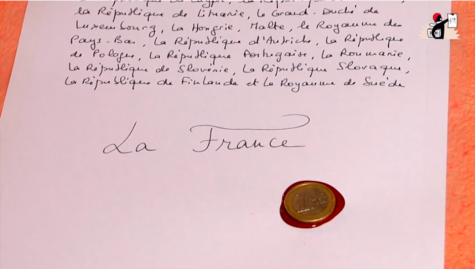 la République de Lituanie, le Grand-Duché de
Luxembourg, la Hongrie, Malte, le Royaume des
Pays-Bas, la République d'Autriche, la République
de Pologne, la République Portugaise, la Roumanie,
la République de Slovénie, la République Slovaque,
la République de Finlande et le Royaume de Suède
La France